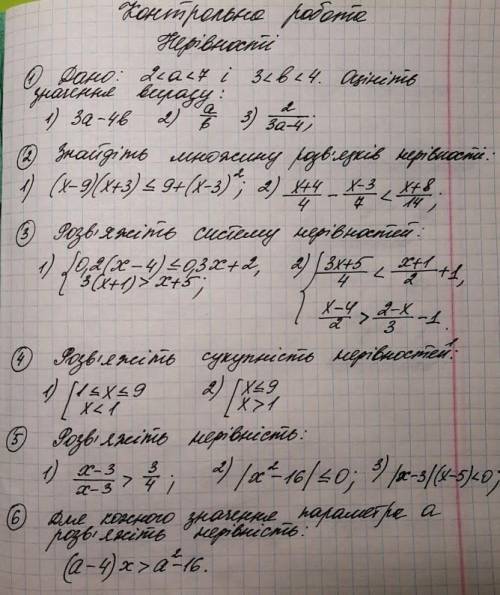 Контрольна робота
Нерівності
① Дано: 2<a<7 і 3<b<4. Оцініть
значення виразу:
1) 3a-4b 2) a/b 3) 2/(3a-4);
② Знайдіть множину розв'язків нерівності:
1) (x-9)(x+3) ≤ 9+(x-3)²; 2) (x+4)/4 - (x-3)/7 < (x+8)/14;
③ Розв'яжіть систему нерівностей:
1) { 0,2(x-4) ≤ 0,3x+2, 2) { (3x+5)/4 < (x+1)/2 + 1,
3(x+1) > x+5; (x-4)/2 > (2-x)/3 - 1.
④ Розв'яжіть сукупність нерівностей:
1) [ 1≤x≤9 2) [ x≤9
x<1 x>1
⑤ Розв'яжіть нерівність:
1) (x-3)/(x-3) > 3/4; 2) |x²-16| ≤ 0; 3) |x-3|(x-5)<0;
⑥ Для кожного значення параметра a
розв'яжіть нерівність:
(a-4)x > a²-16.